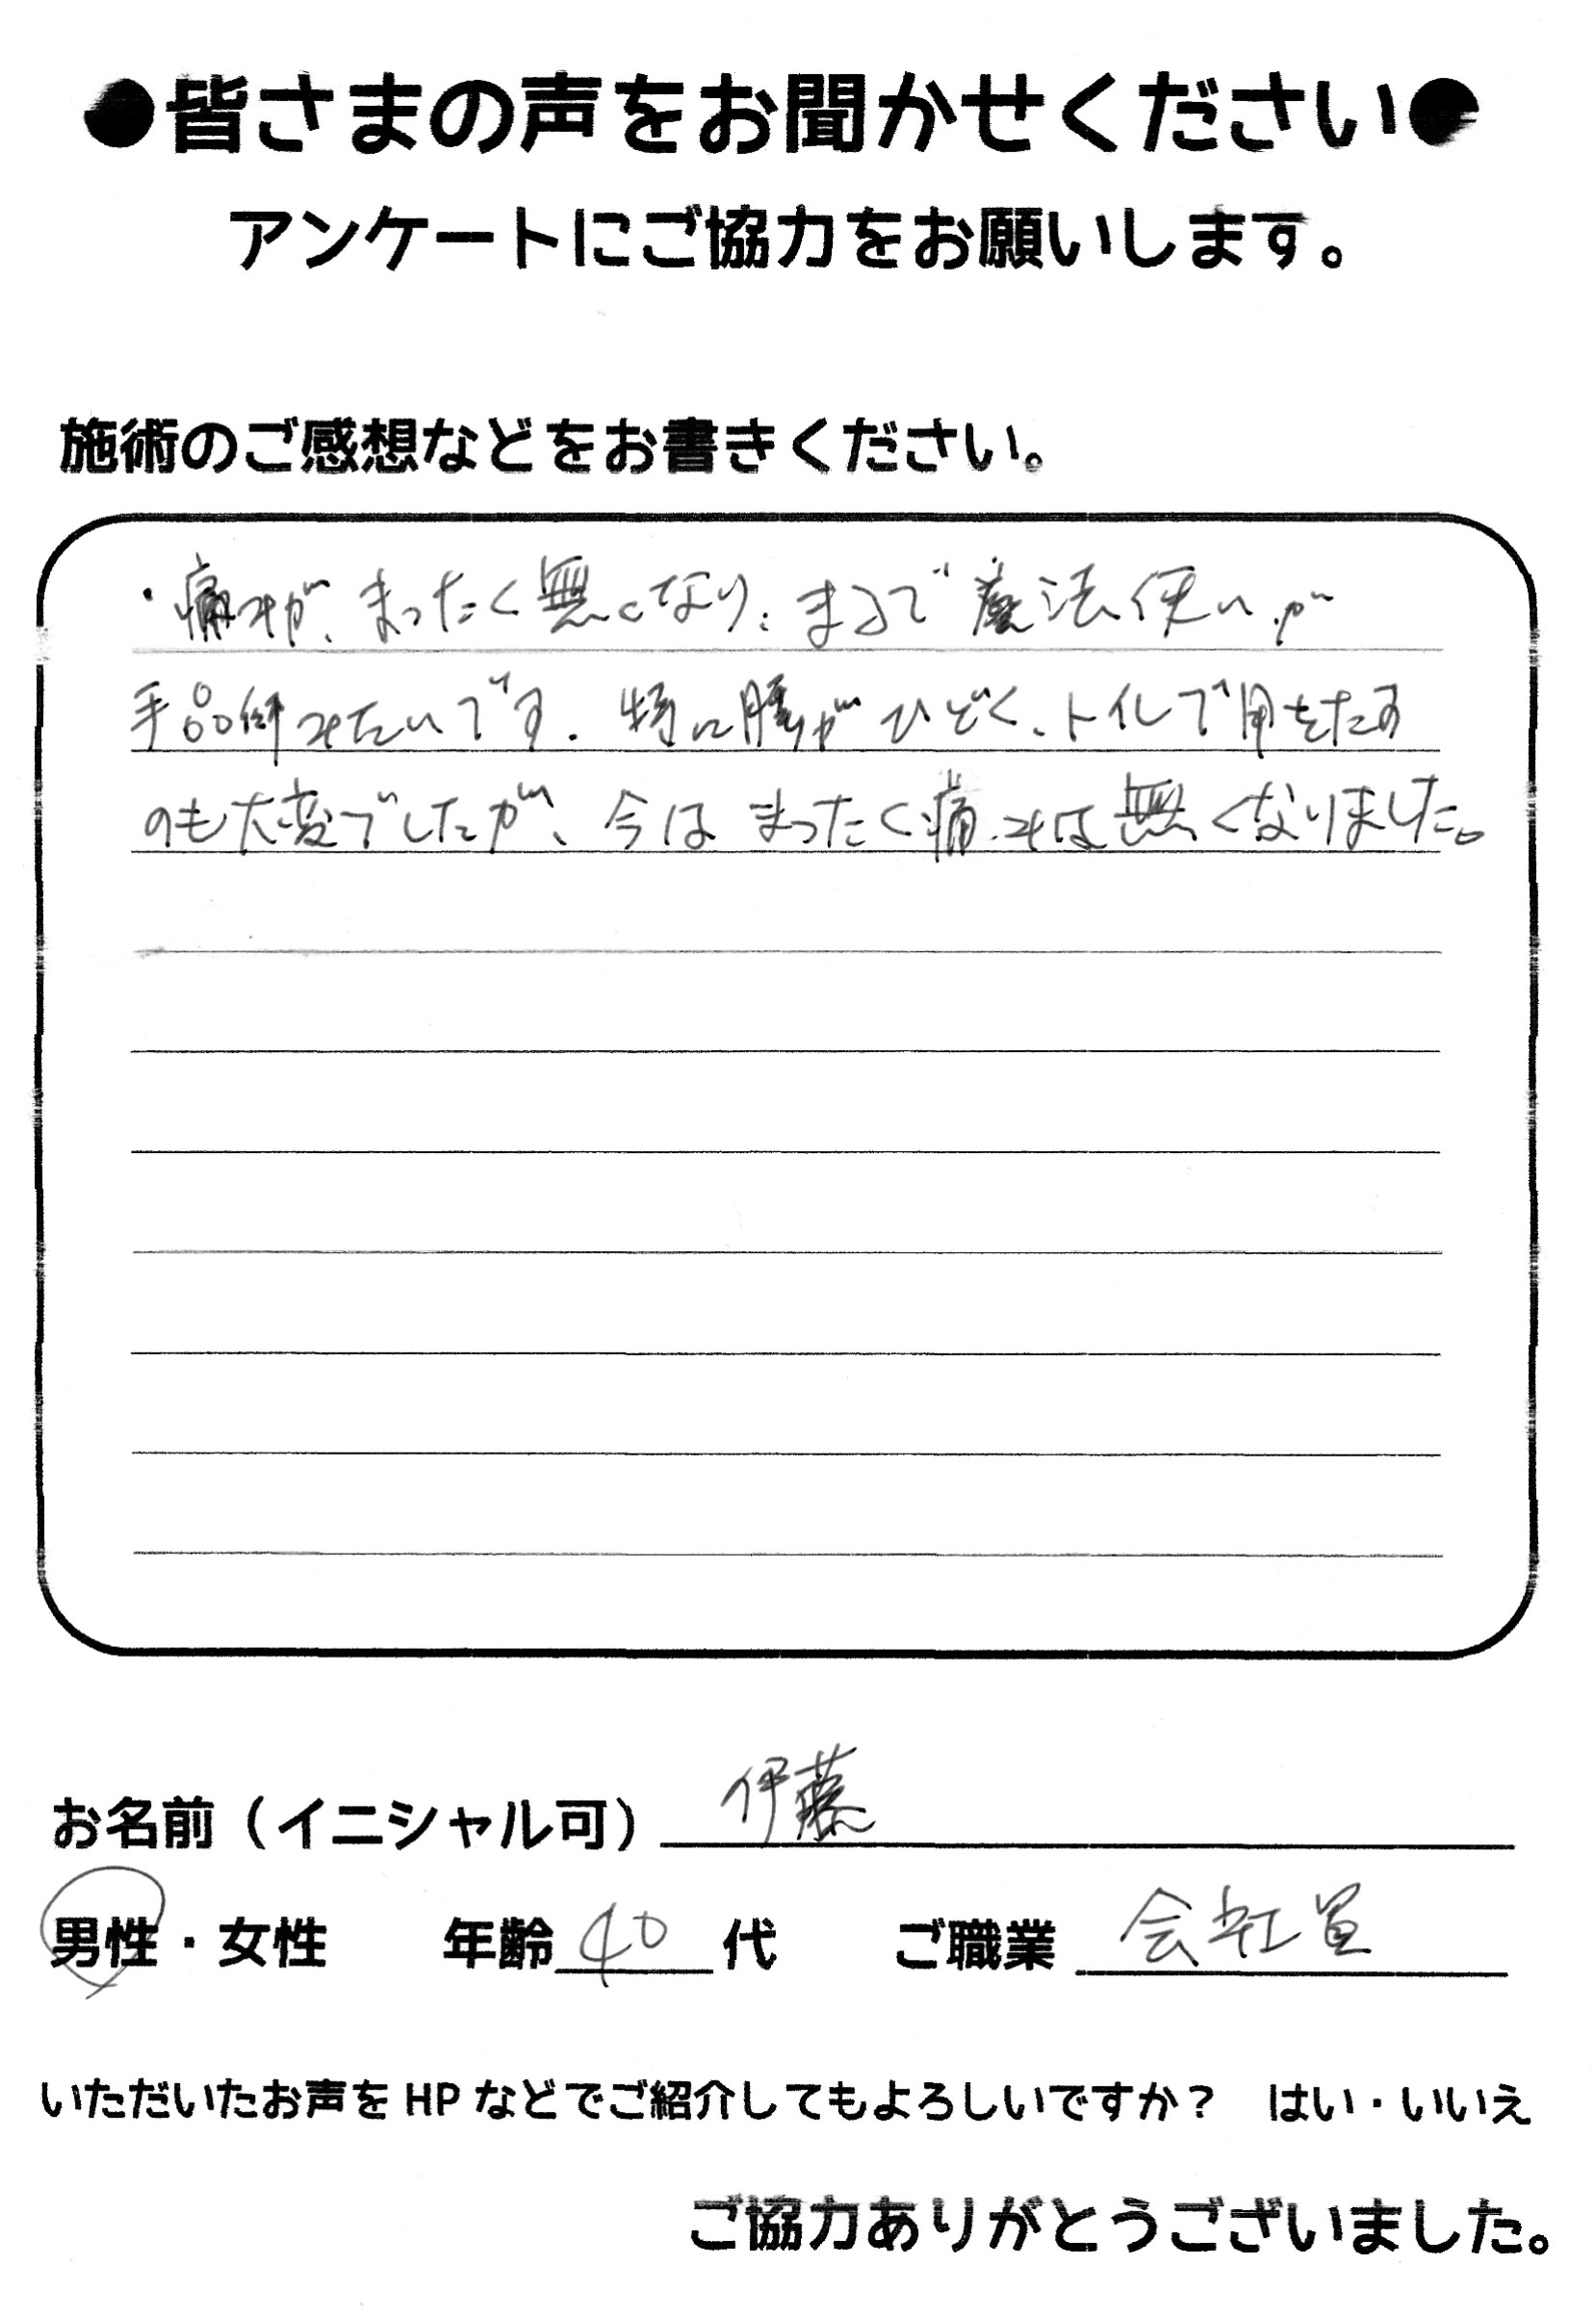 ●皆さまの声をお聞かせください●
アンケートにご協力をお願いします。
施術のご感想などをお書きください。
・痛みが、まったく無くなり、まるで魔法使いか
手品師みたいです。特に腰がひどく、トイレで用をたす
のも大変でしたが、今はまったく痛みは無くなりました。
お名前（イニシャル可） 伊藤
男性・女性 年齢 40 代 ご職業 会社員
いただいたお声を HP などでご紹介してもよろしいですか？ はい・いいえ
ご協力ありがとうございました。